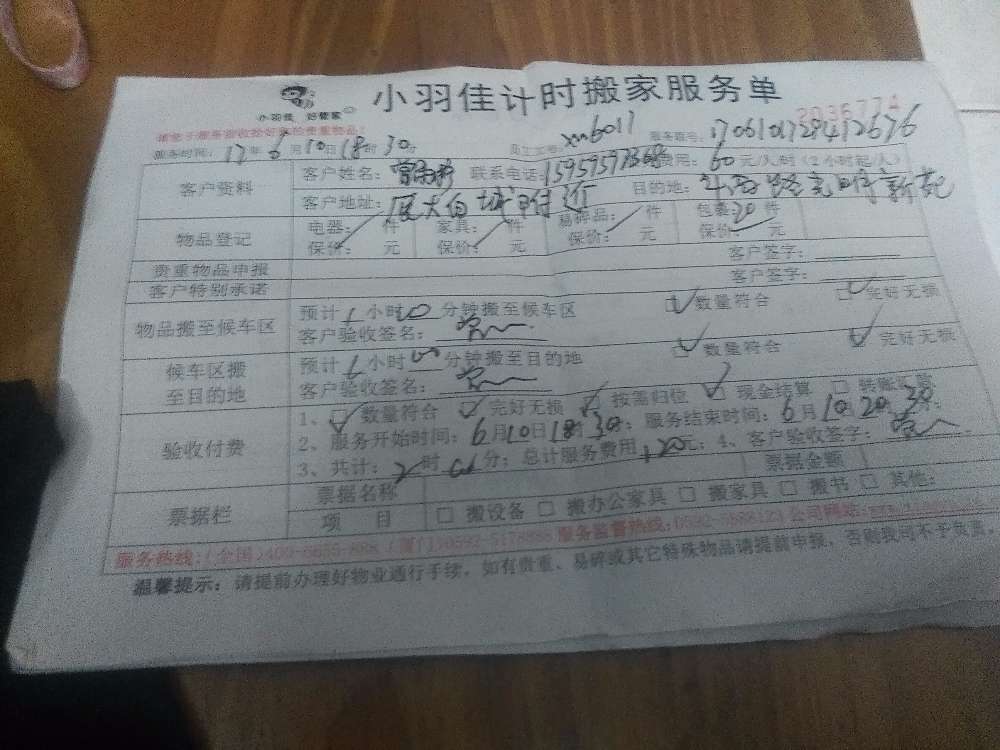 小羽佳 好管家
小羽佳计时搬家服务单
2036774
服务时间: 17年6月10日18时30分 xm6011 服务单号:
客户资料 客户姓名: 联系电话: 费用: 60元/人/时 (2小时起/人)
客户地址: 厦大白城 目的地:
物品登记 电器: 件 家具: 件 易碎品: 件 包裹20件
保价: 元 保价: 元 保价: 元 保价: 元
贵重物品申报 客户签字:
客户特别承诺 客户签字:
物品搬至候车区 预计1小时0分钟搬至候车区 数量符合 完好无损
客户验收签名:
候车区搬至目的地 预计1小时00分钟搬至目的地 数量符合 完好无损
客户验收签名:
验收付费 1、数量符合 完好无损 按需归位 现金结算 转账
2、服务开始时间: 6月10日18时30分; 服务结束时间: 6月10日20时30分;
3、共计: 2时00分; 总计服务费用120元; 4、客户验收签字:
票据栏 票据名称 票据金额
项目 搬设备 搬办公家具 搬家具 搬书 其他:
服务热线: (全国)400-6655-888 (厦门)0592-5178888 服务监督热线: 公司网站:
温馨提示: 请提前办理好物业通行手续, 如有贵重、易碎或其它特殊物品请提前申报, 否则我司不予负责。